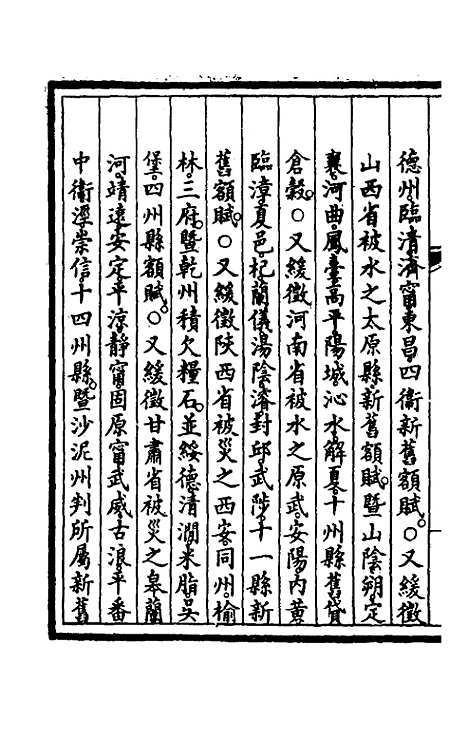 德州。臨清。濟甯。東昌四衞新舊額賦。○又緩徵
山西省被水之太原縣新舊額賦。暨山陰。朔。定
襄。河曲。鳳臺。高平。陽城。沁水。解。夏。十州縣舊貸
倉穀。○又緩徵河南省被水之原武。安陽。內黃
臨漳。夏邑。杞。蘭儀。湯陰。濬。封邱。武陟。十一縣新
舊額賦。○又緩徵陝西省被災之西安。同州。榆
林。三府。暨乾州積欠糧石。並綏德。清澗。米脂。吳
堡。四州縣額賦。○又緩徵甘肅省被災之臯蘭
河。靖遠。安定。平涼。靜甯。固原。甯武。威。古浪。平番
中衞。涇。崇信。十四州縣。暨沙泥州判所屬新舊